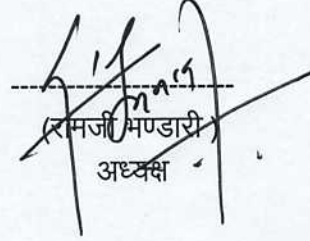 (रामजी भण्डारी)
अध्यक्ष